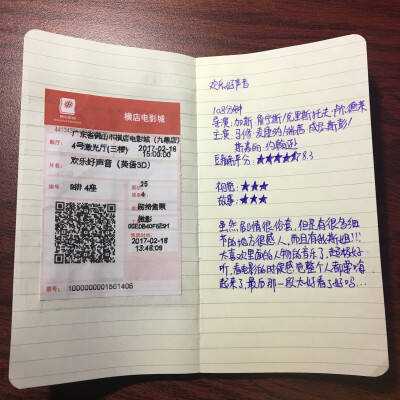 横店电影城
广东省佛山市横店电影城(九鼎店)
4号激光厅(三楼)
2017-02-16
15:00:00
片名:
欢乐好声音(英语3D)
座号:
9排 4座
25
4
网络售票
2017-02-16
13:46:09
票号:
1000000001561406
欢乐好声音
108分钟
导演:加斯·詹宁斯/克里斯托夫·
主演:马修·麦康纳/瑞茜·威瑟斯彭/
斯嘉丽·约翰逊
豆瓣评分:★★★★☆8.3
★★★
故事:★★★
虽然剧情很俗套,但是有很多细
节的地方很感人,而且有
太喜欢里面的人物的音乐了,超好
听,看电影的时候感觉整个人都要嗨
起来了,最后那一段太好看了好吗...